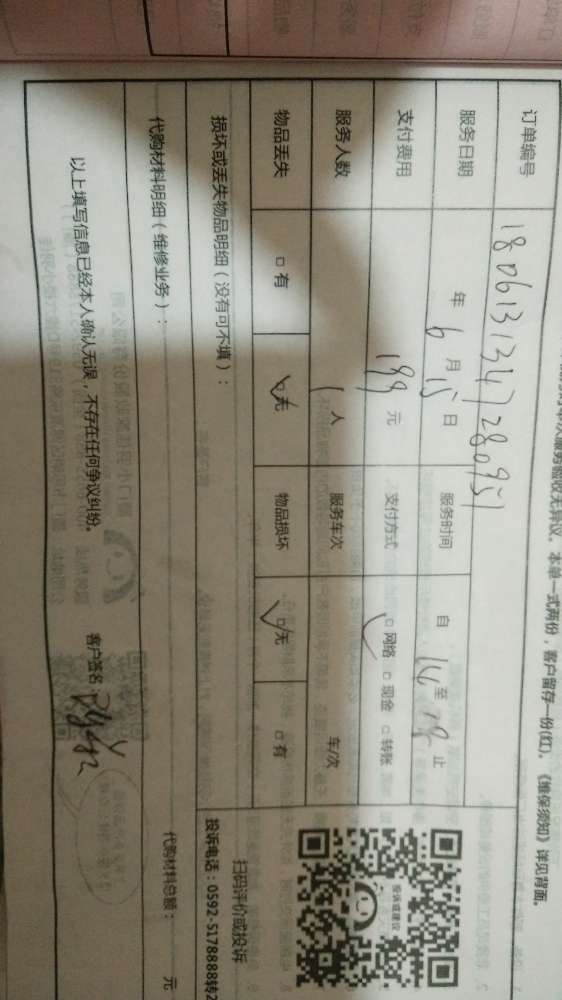 本单一式两份，客户留存一份(红)。《维保须知》详见背面。
订单编号 180613134728095
服务日期 年 6 月 15 日 服务时间 自 14 至 18 止
支付费用 199 元 支付方式 □ 网络 □ 现金 □ 转账
服务人数 1 人 服务车次 车/次
物品丢失 □ 有 □ 无 物品损坏 □ 无 □ 有
损坏或丢失物品明细（没有可不填）：
投诉或建议
扫码评价或投诉
投诉电话：0592-5178888转2
代购材料明细（维修业务）： 代购材料总额： 元
以上填写信息已经本人确认无误，不存在任何争议纠纷。 客户签名：